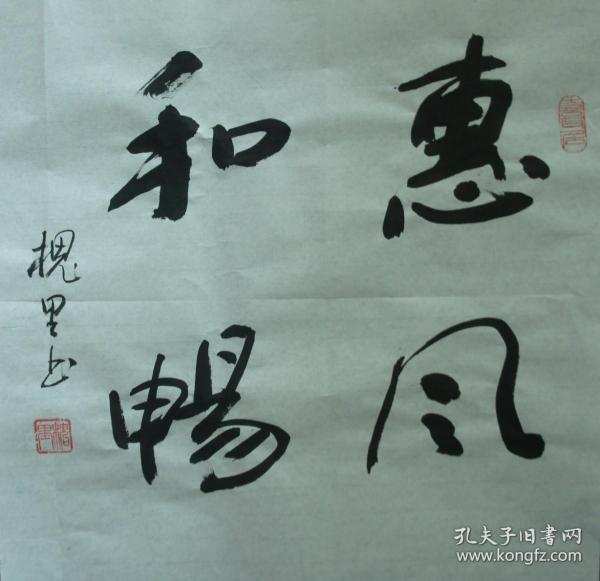 惠风
和暢
槐里书
孔夫子旧书网
www.kongfz.com